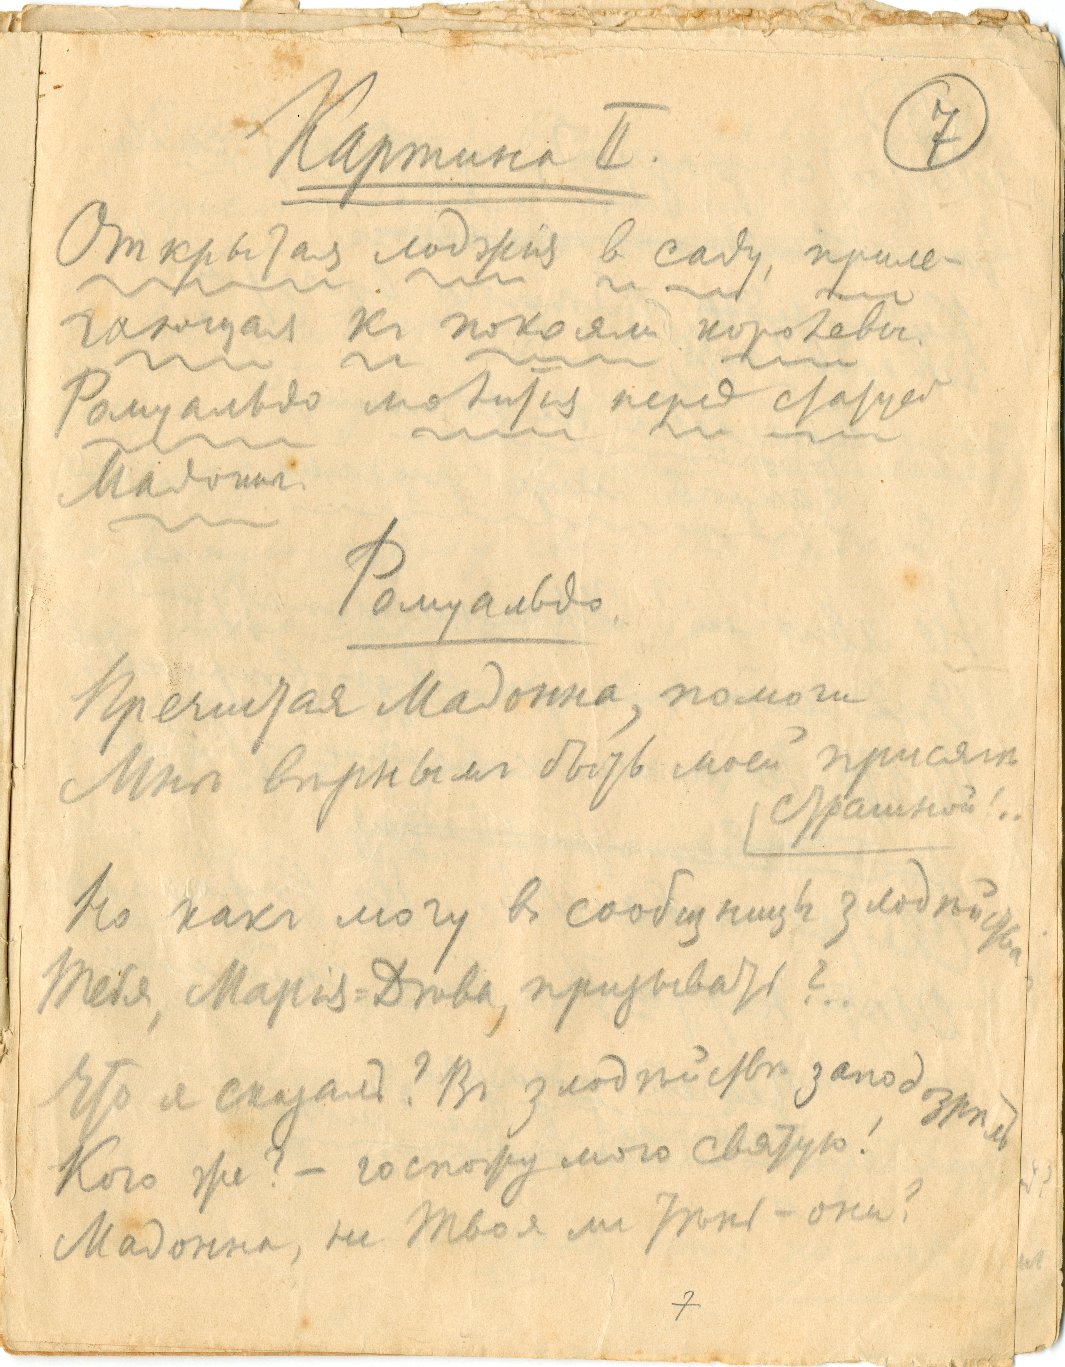 7
Картина II.
Открытая лоджія в саду, приле-
гающая къ покоямъ королевы.
Ромуальдо молится перед статуей
Мадонны.
Ромуальдо.
Пречистая Мадонна, помоги
Мнѣ вѣрнымъ быть моей присягѣ
страшной!..
Но какъ могу въ сообщницы злодѣйства
Тебя, Марія=Дѣва, призывать?..
Что я сказалъ? Въ злодѣйствѣ заподозрилъ
Кого же? – госпожу мою святую!
Мадонна, не Твоя ли тѣнь – она?
7